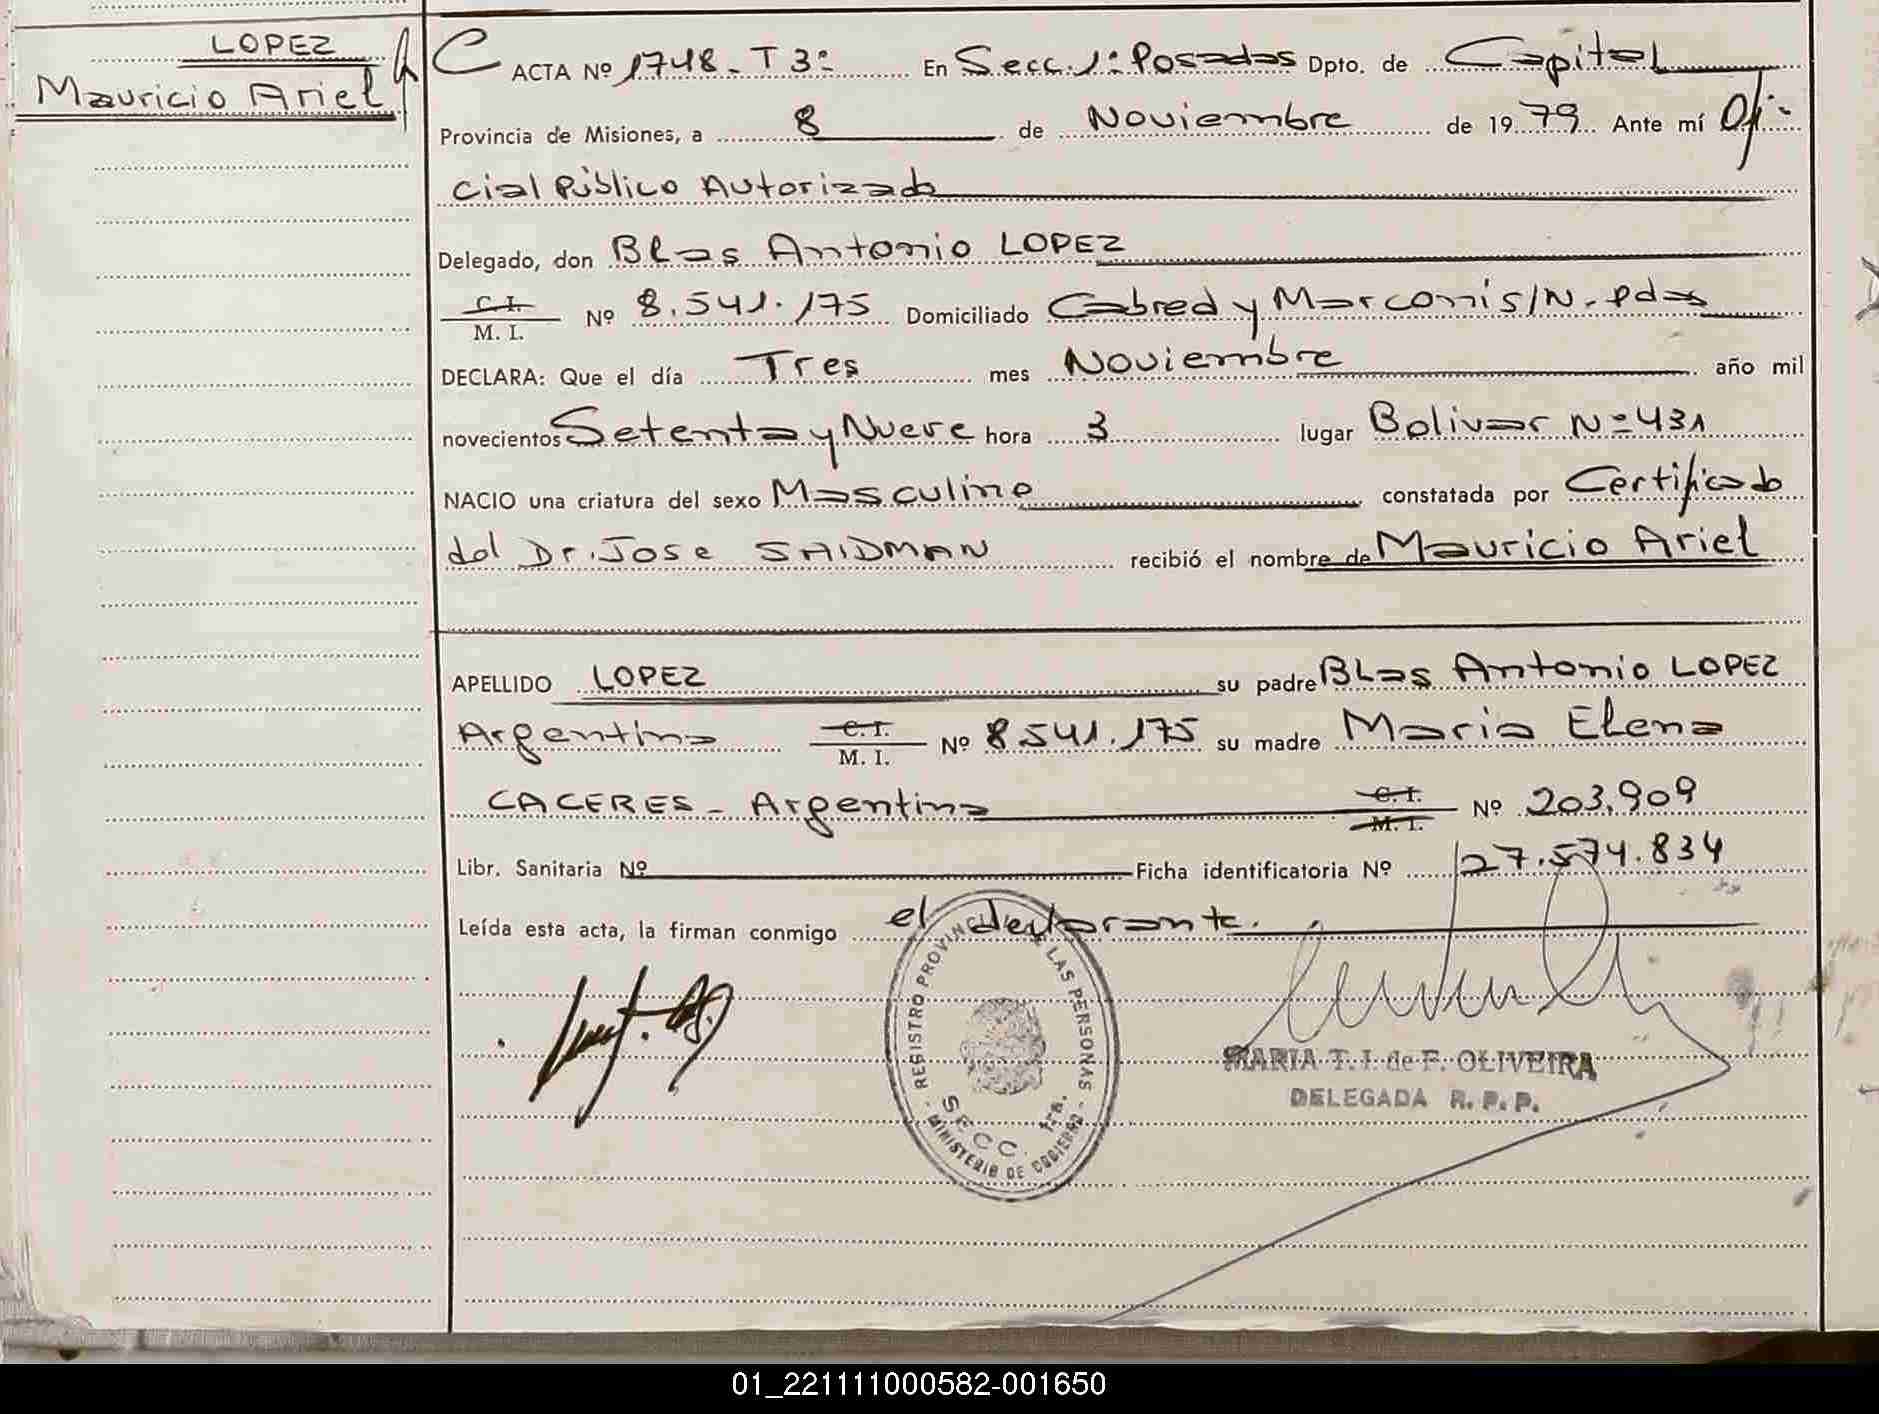 LOPEZ
Mauricio Ariel
C ACTA Nº 1748 - T 3º En Secc. 1ª Posadas Dpto. de Capital
Provincia de Misiones, a 8 de Noviembre de 1979 Ante mí Ofi-
cial Público Autorizado
Delegado, don Blas Antonio LOPEZ
C. I.
M. I. Nº 8.541.175 Domiciliado Cabred y Marconi s/N. Pdas
DECLARA: Que el día Tres mes Noviembre año mil
novecientos Setenta y Nueve hora 3 lugar Bolivar Nº 431
NACIO una criatura del sexo Masculino constatada por Certificado
del Dr. Jose SAIDMAN recibió el nombre de Mauricio Ariel
APELLIDO LOPEZ su padre Blas Antonio LOPEZ
Argentino C. I. M. I. Nº 8.541.175 su madre Maria Elena
CACERES - Argentina C. I. M. I. Nº 203.909
Libr. Sanitaria Nº Ficha identificatoria Nº 27.574.834
Leída esta acta, la firman conmigo el declarante.
- REGISTRO PROVINCIAL DE LAS PERSONAS -
SECC. 1ra.
MINISTERIO DE GOBIERNO
MARIA T. I. de F. OLIVEIRA
DELEGADA R. P. P.
01_221111000582-001650